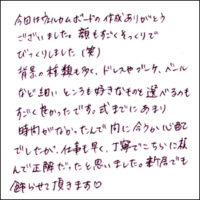 今回はウェルカムボードの作成ありがとう
ございました。顔もすごくそっくりで
びっくりしました(笑)
背景の種類も多く、ドレスやブーケ、ベール
など細いところも好きなものを選べるのも
すごく良かったです。式までにあまり
時間がなかったんで間に合うか心配
でしたが、仕事も早く、丁寧でこちらに頼
んで正解だったと思いました。新居でも
飾らせて頂きます♡